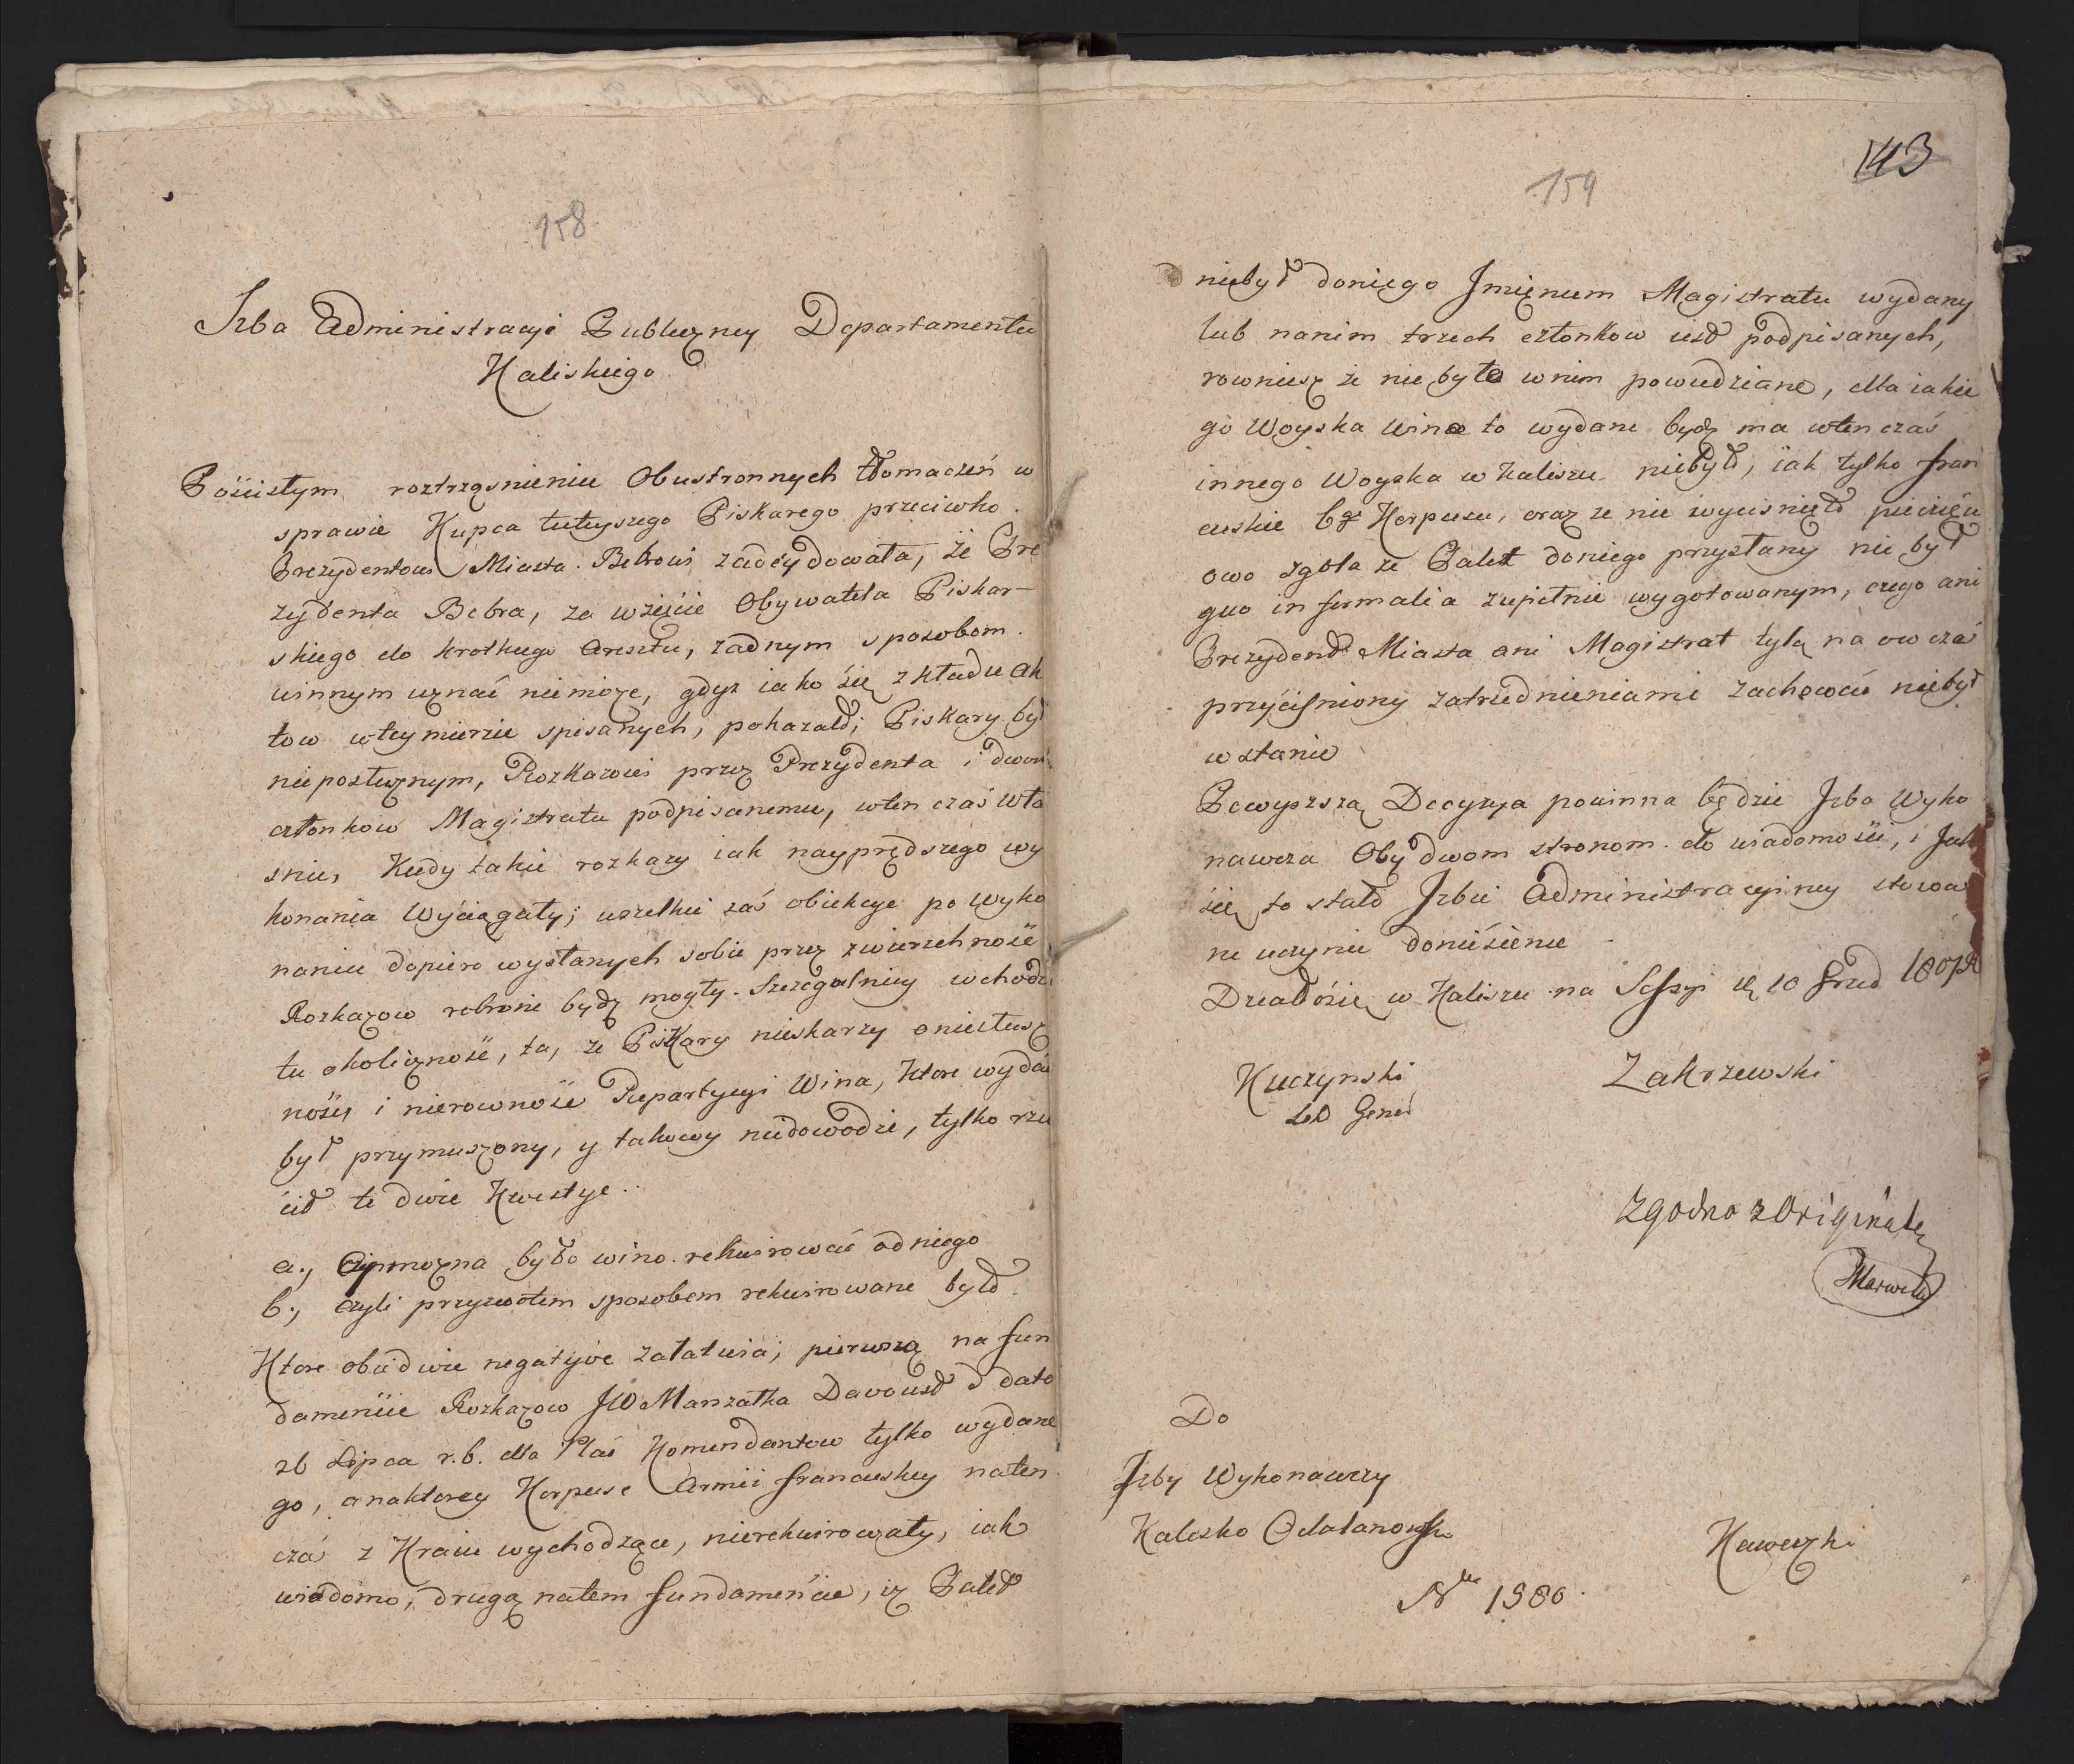 158
Izba Administracyi Publiczney Departamentu
Kaliskiego
Pościsłym roztrząsnieniu Obustronnych tłomaczeń w
sprawie Kupca tuteyszego Piskarego przeciwko
Prezydentowi Miasta Bebrowi zadeydowała, że Pre
zydenta Bebra, za wzięcie Obywatela Piskar-
skiego do krotkiego Aresztu, zadnym sposobem
winnym uznać niemoze, gdyz iako się z kładu Ak
tow wteymierze spisanych, pokazało; Piskary był
nieposłusznym, Rozkazowi przez Prezydenta i dwoch
członkow Magistratu podpisanemu, wten czas wła
snie, Kiedy takie rozkazy iak nayprędszego wy
konania wyciągały; wszelkie zaś obiekcye po wyko
naniu dopiero wysłanych sobie przez zwierzchność
Rozkazow robione bydz mogły. Szczegulniey wchodzi
tu okoliczność, ta, ze Piskary nieskarzy o niesłusz
ność i nierowność Repartycyi Wina, ktore wydać
był przymuszony, y takowey niedowodzi, tylko rzu
cił te dwie Kwestye.
a., Czy mozna było wino rekwirować od niego
b., czyli przyzwoitem sposobem rekwirowane było
Ktore obiedwie negatyve załatwia; pierwszą na fun
damencie Rozkazow JW Marszałka Davoust d dato
26 Lipca r. b. dla Plac Komendantow tylko wydane
go, a naktorey Korpuse Armii francuskiey naten
czas z Kraiu wychodzące, nierekwirowały, iak
wiadomo, drugą natem fundamencie, iz Palet
159
143
niebył doniego Imieniem Magistratu wydany
lub nanim trzech członkow iest podpisanych,
rowniesz ze nie było wnim powiedziane, dla iakie
go Woyska Wino to wydane bydz ma wten czas
innego Woyska w Kaliszu niebyło, iak tylko fran
cuskie 6go Korpusu, oraz ze nie wycisnięto pieczęci
owo zgoła ze Palet doniego przysłany nie był
quo in formalia zupełnie wygotowanym, czego ani
Prezydent Miasta ani Magistrat tylą na ow czas
przyciśniony zatrudnieniami zachować niebył
wstanie
Powyzszą Decyzya powinna będzie Izba Wyko
nawcza Obydwom stronom do wiadomości, i Jak
się to stało Izbie Administracyiney stosow
ne uczynić doniesienie
Działo się w Kaliszu na Sessyi d 10 Grud 1807 R
Kuczynski Zakrzewski
Sek Gener
Zgodno z Originałem
Do
Izby Wykonawczy
Kalisko Odalanowsk
Kaweczki
Nr 1986.